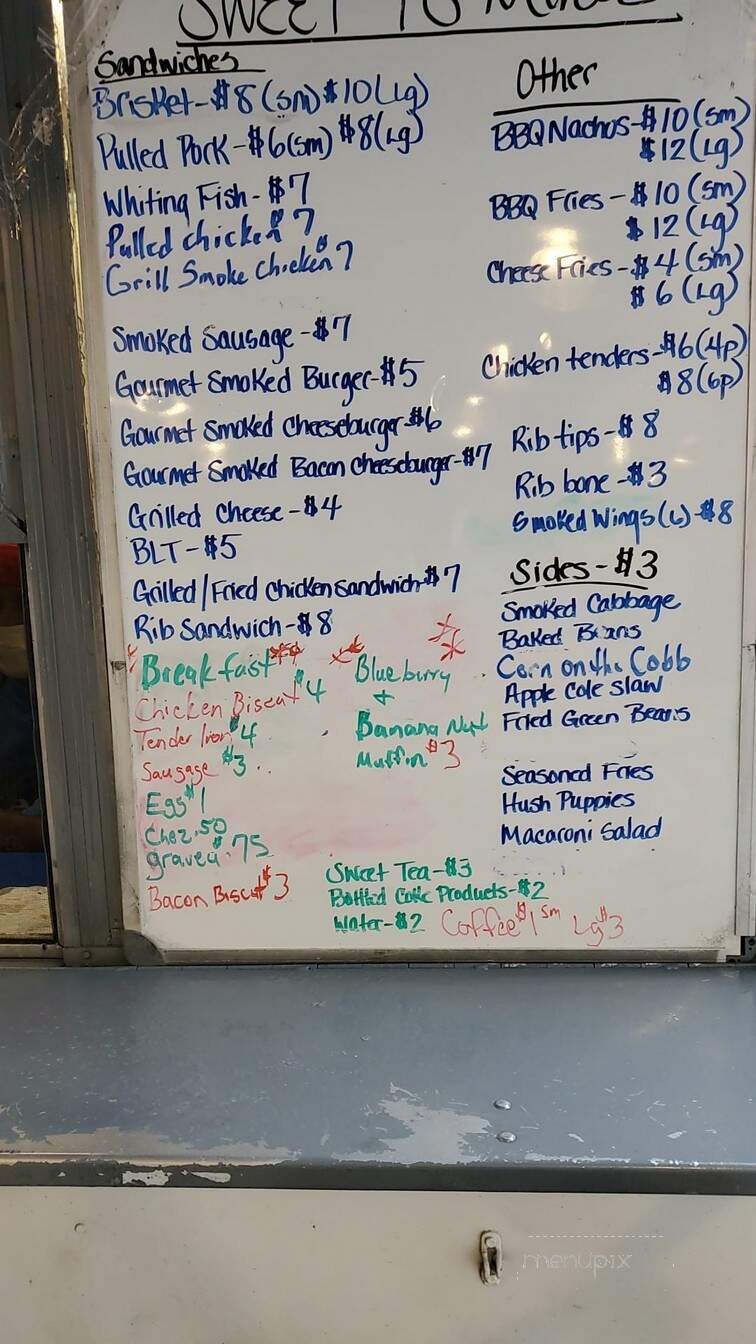 SWEET
Sandwiches
Brisket-$8(sm)$10(Lg)
Pulled Pork-$6(sm) $8(Lg)
Whiting Fish-$7
Pulled chicken $7
Grill Smoke Chicken $7
Smoked Sausage-$7
Gourmet Smoked Burger-$5
Gourmet Smoked Cheeseburger-$6
Gourmet Smoked Bacon Cheeseburger-$7
Grilled Cheese-$4
BLT-$5
Grilled/Fried Chicken Sandwich-$7
Rib Sandwich-$8
Other
BBQ Nachos-$10(sm)
$12(Lg)
BBQ Fries-$10(sm)
$12(Lg)
Cheese Fries-$4(sm)
$6(Lg)
Chicken tenders-$6(4p)
$8(6p)
Rib tips-$8
Rib bone-$3
Smoked Wings(6)-$8
Sides-$3
Smoked Cabbage
Baked Beans
Corn on the Cobb
Apple Cole Slaw
Fried Green Beans
Seasoned Fries
Hush Puppies
Macaroni Salad
Breakfast
Chicken Biscut $4
Tender lion $4
Sausage $3
Egg $1
Chez .50
gravea $.75
Bacon Biscut $3
Blueburry
+
Banana Nut
Muffin $3
Sweet Tea-$3
Bottled Coke Products-$2
Water-$2 Coffee $1 sm Lg $3
menupix